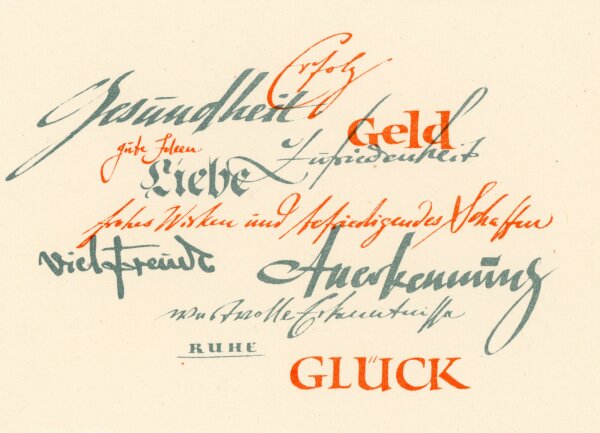 Erfolg
Gesundheit
Geld
gute Ideen
Zufriedenheit
Liebe
frohes Wirken und befriedigendes Schaffen
Viel Freude
Anerkennung
wertvolle Erkenntnisse
RUHE
GLÜCK